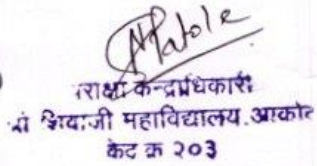 Patole
परीक्षा केन्द्राधिकारी
श्री शिवाजी महाविद्यालय. आकोट
केंद्र क्र २०३